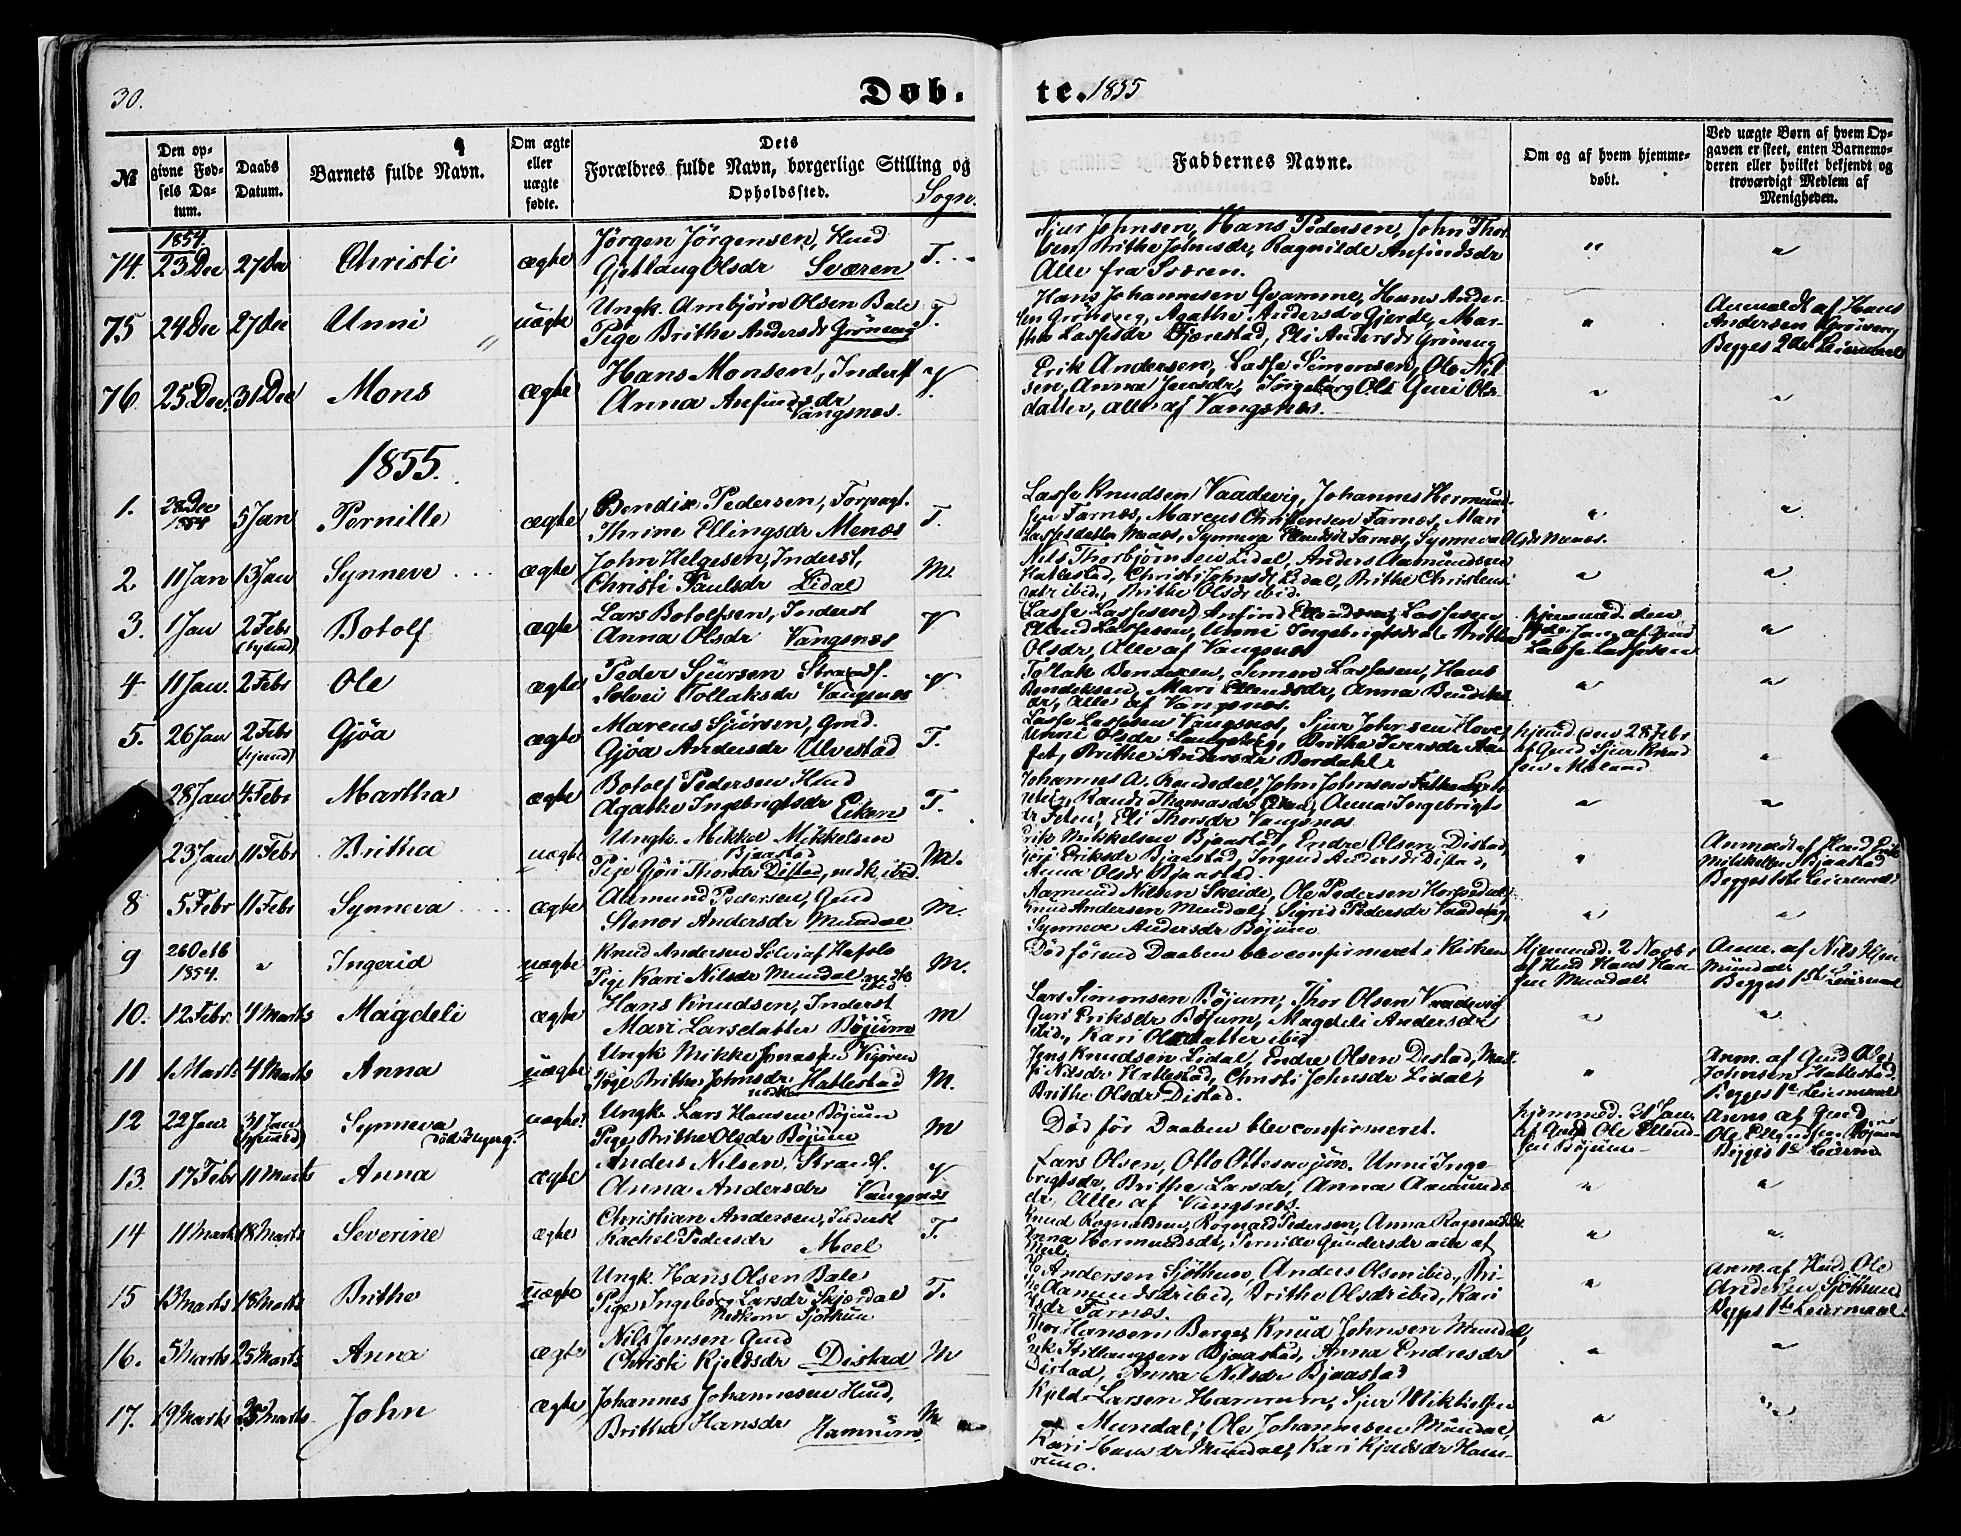 30.
Døb-
te. 1855
№
Den op-
givne Fød-
sels Da-
tum.
Daabs
Datum.
Barnets fulde Navn.
Om ægte
eller
uægte
fødte.
Dets
Forældres fulde Navn, borgerlige Stilling og
Opholdssted.
Sogn.
Faddernes Navne.
Om og af hvem hjemme-
døbt.
Ved uægte Børn af hvem Op-
gaven er skeet, enten Barnemo-
deren eller hvilket bekjendt og
troværdigt Medlem af
Menigheden.
1854.
74. 23 Dec 27 Dec Christi ægte Jörgen Jörgensen, Huud T.
Olsdr Sværen
Sjur Johnsen, Hans Pedersen, John Thor-
sen, Brithe Johnsdr, Ragnilde Anfindsdr
Alle fra Sværen.
75 24 Dec 27 Dec Unni uægte Ungk. Arnbjörn Olsen Bale T.
Pige Brithe Andersdr Gröneng
Hans Johannesen Qvamme, Hans Ander-
sen Gröneng, Agathe Andersdr Gjerde, Mar-
tha Lassesdr Bjærestad, Eli Andersdr Gröneng
Anmeldt af Hans
Andersen Gröneng
Begges 2det Leiermaal
76. 25 Dec. 31 Dec Mons ægte Hans Monsen, Inderst V.
Anna Anfindsdr
Vangsnes.
Erik Andersen, Lasse Simonsen, Ole Nil-
sen, Anna Jensdr, Ingeborg Ols Guri Ols-
datter, alle af Vangsnes.
1855.
1. 28 Dec
1854 5 Jan Pernille ægte Bendix Pedersen, Forpagt. T.
Thrine Ellingsdr Menæs
Lasse Knudsen Vaadevig, Johannes Hermund-
sen Farnæs, Marcus Christensen Farnæs, Mari
Lassesdatter Menæs, Synneva Ellendsdr Farnæs, Synneva Olsdr Menæs.
2. 11 Jan 13 Jan Synneve ægte John Helgesen, Inderst, M.
Christi Paulsdr Lidal
Nils Thorbjörnsen Lidal, Anders Aamundsen
Hatlestad, Christi Johnsdr Lidal, Brithe Christens-
datr ibid, Brithe Olsdr ibid.
3. 1 Jan 2 Febr Botolf ægte Lars Botolfsen, Inderst V
Anna Olsdr Vangsnæs
Lasse Lassesen, Anfind Ellendsen, Lassesen
Ellend Lassesen, Unni Ingebrigtsdr, Britha
Olsdr, Alle af Vangsnæs
hjemmed. den
Jan. af Gmd
Lasse Lassesen
4 11 Jan. 2 Febr Ole ægte Peder Sjursen Strands. V.
Solvei Tollaksdr Vangsnæs
Tollak Bendixen, Simon Lassesen, Hans
Bendiksen, Mari Ellendsdr, Anna Bendiks-
dr, Alle af Vangsnes.
5. 26 Jan 2 Febr
(hjemd) Gjöa ægte Marcus Sjursen, Gmd. T.
Gjöa Andersdr Ulvestad
Lasse Lassesen Vangsnæs, Sjur Johnsen Hove,
Unni Olsdr, Brithe Iversdr
Brithe Andersdr Bordahl
hjemd den 28 Febr
af Gmd Sjur Knud-
sen Meland
28 Jan 4 Febr Martha ægte Botolf Pedersen Huud T.
Agathe Ingebrigtsdr Eiken
Johannes A. Rendedal, John Johnsen
Randi Thomasdr Eken, Anna Ingebrigts-
dr Feten, Eli Thorsdr Vangsnæs
23 Jan 11 Febr Britha uægte Ungk. Mikkel Mikkelsen M.
Bjaastad
Pige Göri Thorsdr Distad, nedk. ibid.
Erik Mikkelsen Bjaastad, Endre Olsen Distad,
Eriksdr Bjaastad, Ingerid Andersdr Distad,
Anna Olsdr Bjaastad.
Anmeldt af Huud Erik
Mikkelsen Bjaastad
Begges 1ste Leiermaal
8 5 Febr 11 Febr Synneva ægte Aamund Pedersen, Gmd M.
Stenor Andersdr Mundal
Aamund Nilsen Skeide, Ole Pedersen
Knud Andersen Mundal, Sigrid Pedersdr Vaadevig,
Synneve Andersdr Böjum
9 26 Octb
1854. Ingerid uægte Knud Andersen af Hafslo M.
Pige Kari Nilsdr Mundal
Död förend Daaben blev confirmeret i Kirken
Hjemmed. 2 Novbr
af Huud Hans Han-
sen Mundal
Anm. af Nils
Mundal
Begges 1ste Leiermaal
10. 12 Febr. 4 Marts Magdeli ægte Hans Knudsen, Inderst M
Mari Larsdatter Böjum
Lars Simonsen Böjum, Thor Olsen Vaadevig
Guri Eriksdr Böjum, Magdeli Andersdr
ibid, Kari Olsdatter ibid
11 1 Marts 4 Marts Anna uægte Ungk Mikkel Jonassen M.
Pige Brithe Johnsdr Hatlestad
Jens Knudsen Lidal, Endre Olsen Distad, Mar-
Nilsdr Hatlestad, Christi Johnsdr Lidal,
Brithe Olsdr Distad.
Anm. af Gmd Ole
Johnsen Hatlestad.
Begges 1ste Leiermaal
12 22 Jan 31 Jan Synneva uægte Ungk. Lars Hansen Böjum M
Pige Brithe Olsdr Böjum
Död för Daaben blev confirmeret.
hjemmed. 31 Jan.
af Gmd Ole Ellend-
sen Böjum
Anm. af Gmd
Ole Ellendsen Böjum
Begges 1ste Leierm
13. 17 Febr 11 Marts Anna ægte Anders Nilsen, Strands. V
Anna Andersdr Vangsnæs
Lars Olsen, Otto Ottesen jun. Unni Inge-
brigtsdr, Brithe Larsdr, Anna Aamunds-
dr, Alle af Vangsnæs.
14 11 Marts 18 Marts Severine ægte Christian Andersen, Inderst T.
Rachel Pedersdr Meel
Knud Rognaldsen, Rognald Pedersen, Anna Rognaldsdr
Anna Hermundsdr, Pernille Gundersdr alle af
Meel
15 13 Marts 18 Marts Brithe uægte Ungk. Hans Olsen Bale T.
Pige Ingeborg Larsdr Skjærdal
Nedkom Sjöthun
Andersen Sjöthun, Anders Olsen ibid, Bri-
the Aamundsdr ibid, Brithe Olsdr ibid, Kari
Farnæs.
Anm. af Huud Ole
Andersen Sjöthun
Begges 1ste Leiermaal
16. 5 Marts 25 Marts Anna ægte Nils Jensen Gmd M
Christi Kjeldsdr Distad
Thor Hansen Berge, Knud Johnsen Mundal,
Bjaastad, Anna Endresdr
Distad, Anna Nilsdr Bjaastad
17. 19 Marts 25 Marts John ægte Johannes Johannesen Huud, M
Britha Hansdr Hamrum
Kjeld Larsen Hamrum, Sjur Mikkelsen
Mundal, Ole Johannesen Mundal,
Kari Hansdr Mundal, Kari Kjeldsdr Ham-
rum.